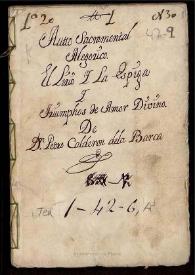 1º 20 1 N 30
42-9
Autto Sacramental
Alegorico.
El Lirio Y La Espiga
Y
Triumphos de Amor Divino
De
D. Pedro Calderon dela Barca
Tea 1-42-6, A